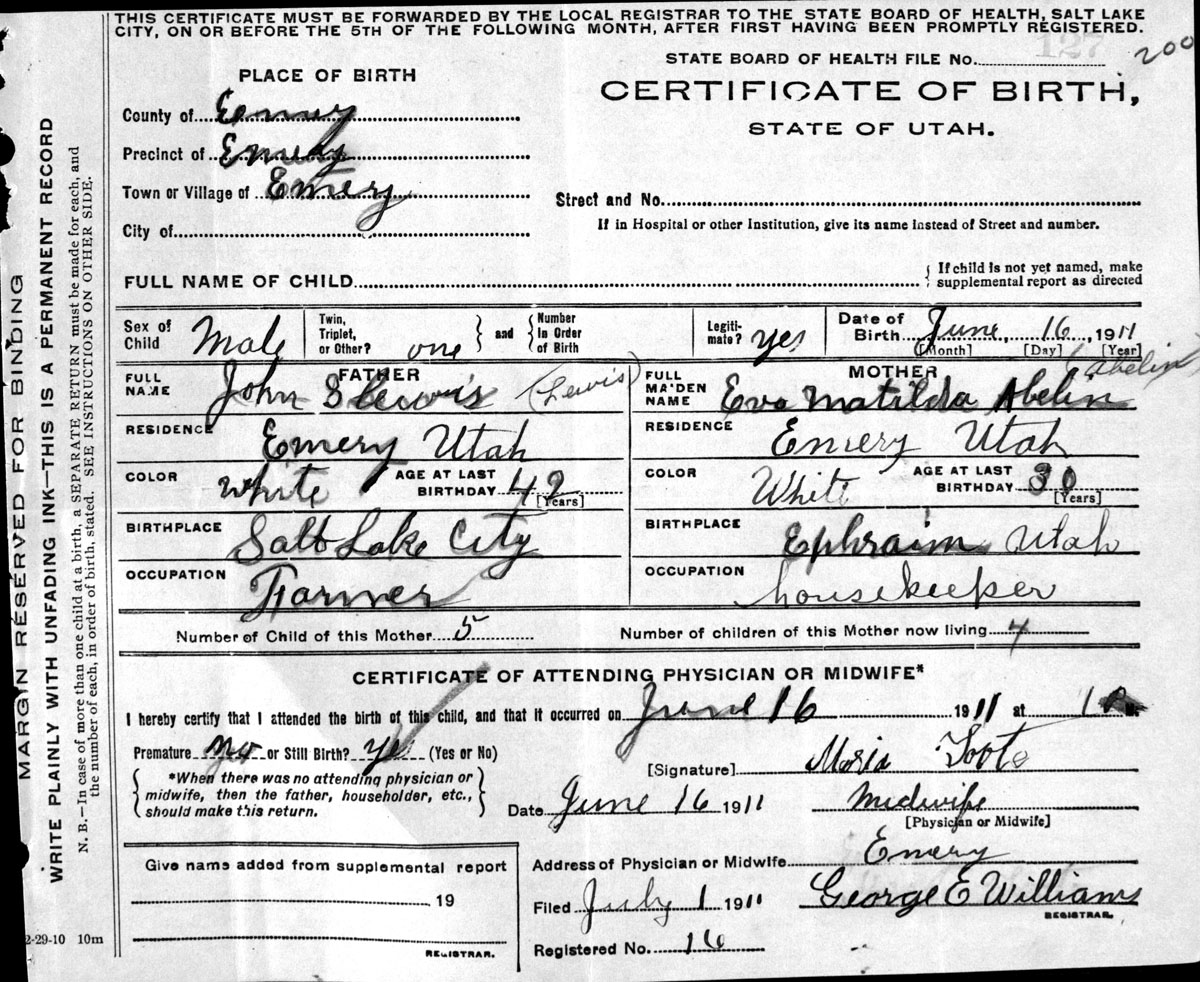 THIS CERTIFICATE MUST BE FORWARDED BY THE LOCAL REGISTRAR TO THE STATE BOARD OF HEALTH, SALT LAKE
CITY, ON OR BEFORE THE 5TH OF THE FOLLOWING MONTH, AFTER FIRST HAVING BEEN PROMPTLY REGISTERED.
127
200
STATE BOARD OF HEALTH FILE No.
PLACE OF BIRTH
CERTIFICATE OF BIRTH,
STATE OF UTAH.
County of Emery
Precinct of Emery
Town or Village of Emery
City of
Street and No.
If in Hospital or other Institution, give its name instead of Street and number.
FULL NAME OF CHILD
{ If child is not yet named, make
supplemental report as directed
Sex of Child Male
Twin, Triplet, or Other? one } and { Number in Order of Birth
Legiti-mate? yes
Date of Birth June 16, 1911
[Month] [Day] [Year]
FATHER
FULL NAME John S Lewis (Lewis)
RESIDENCE Emery Utah
COLOR White
AGE AT LAST BIRTHDAY 42
[Years]
BIRTHPLACE Salt Lake City
OCCUPATION Farmer
MOTHER
(Abelin)
FULL MAIDEN NAME Eva Matilda Abelin
RESIDENCE Emery Utah
COLOR White
AGE AT LAST BIRTHDAY 30
[Years]
BIRTHPLACE Ephraim Utah
OCCUPATION housekeeper
Number of Child of this Mother 5
Number of children of this Mother now living 4
CERTIFICATE OF ATTENDING PHYSICIAN OR MIDWIFE*
I hereby certify that I attended the birth of this child, and that it occurred on June 16 1911 at
Premature no or Still Birth? yes (Yes or No)
{ *When there was no attending physician or
midwife, then the father, householder, etc.,
should make this return. }
[Signature] Maria Foote
Date June 16 1911
Midwife
[Physician or Midwife]
Address of Physician or Midwife Emery
Filed July 1 1911
George E Williams
REGISTRAR.
Registered No. 16
Give name added from supplemental report
19
REGISTRAR.
2-29-10 10m
MARGIN RESERVED FOR BINDING
WRITE PLAINLY WITH UNFADING INK—THIS IS A PERMANENT RECORD
N. B.—In case of more than one child at a birth, a SEPARATE RETURN must be made for each, and
the number of each, in order of birth, stated. SEE INSTRUCTIONS ON OTHER SIDE.